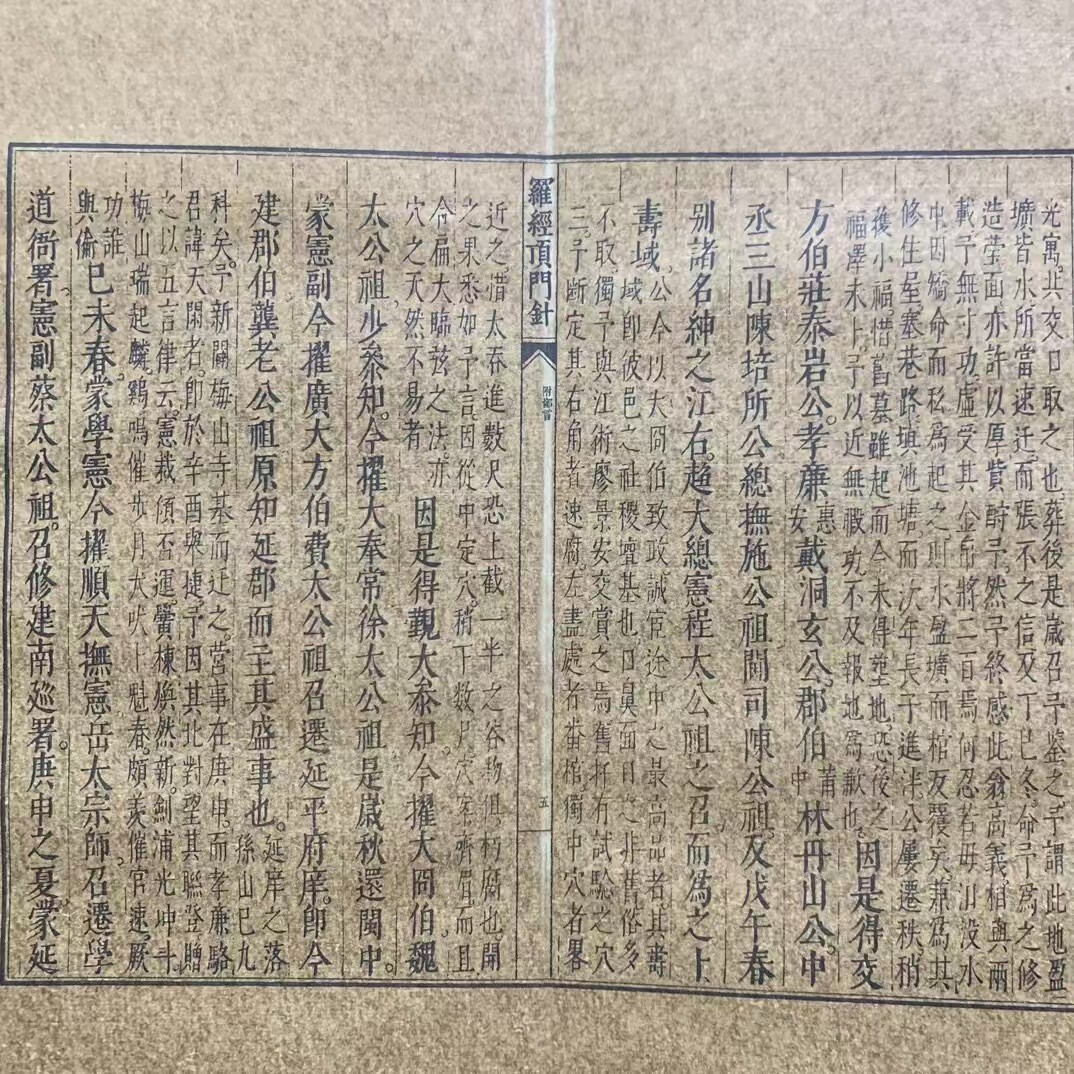 光寓其交口取之也葬後是歲召予鍳之予謂此地盈
壙皆水所當速迁而張不之信及丁巳冬命予爲之修
造塋面亦許以厚貲酧予然予終感此翁高義相與兩
載予無寸功虛受其金帛將二百焉何忍若毋汨没水
中因矯命而私爲起之則水盈壙而棺反覆矣兼爲其
修生屋塞巷路填池塘而次年長子進泮公屢遷秩稍
獲小福惜舊墓雖起而今未得塟地恐後之
福澤未上予以近無職功不及報地爲歉也因是得交
方伯莊泰岩公孝廉惠安戴洞玄公郡伯莆中林丹山公中
丞三山陳培所公總撫施公祖閫司陳公祖及戊午春
别諸名紳之江右超大總憲程太公祖之召而爲之卜
壽域公今以大冏伯致政誠宦途中之最高品者其壽
域即彼邑之祖稷壇基也口具面目之非舊俗多
不取獨予與江術廖景安交賞之焉舊拜有試騐之穴
三予断定其右角者速腐左盡處者畨棺獨中穴者畧
羅經頂門針
附部首
五
近之惜太吞進數尺恐上截一半之谷物俱朽腐也開
之果悉如予言因從中定穴稍下数尺穴案齊眉而且
合扁大臨弦之法亦
穴之天然不易者因是得覲大叅知今擢大冏伯魏
太公祖少叅知今擢大奉常徐太公祖是嵗秋還閩中
蒙憲副今擢廣大方伯費太公祖召遷延平府庠即今
建郡伯龔老公祖原知延郡而主其盛事也延庠之落孫山巳九
科矣予新闢梅山寺基而迁之営事在庚申而孝廉駱
君諱天閑者即於辛酉與捷予因其北對望其聯登贈
之以五言律云憲栽傾否運黌棟煥然新劍浦光冲斗
梅山瑞起麟鷄鳴催歩月犬吠卜魁春頗羨催官速厥
功誰與倫巳未春蒙學憲今擢順天撫憲岳太宗師召遷學
道衙署憲副蔡太公祖召修建南廵署庚申之夏蒙延